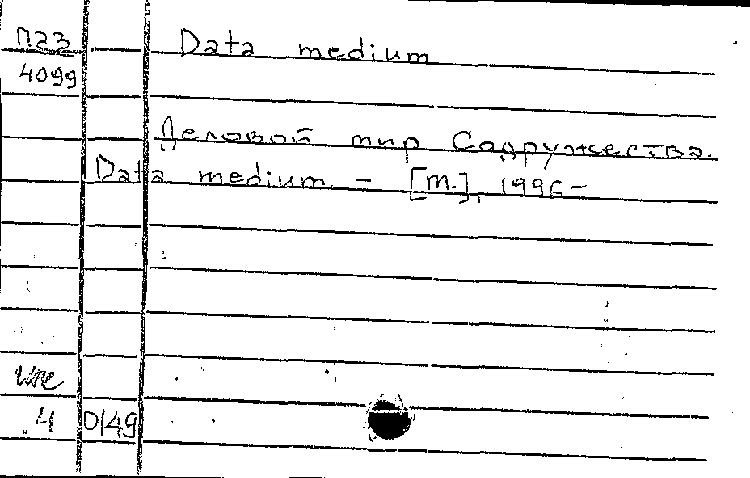 П23 Data medium
4099
Деловой мир Содружества.
Data medium - [М.], 1996-
4 0149